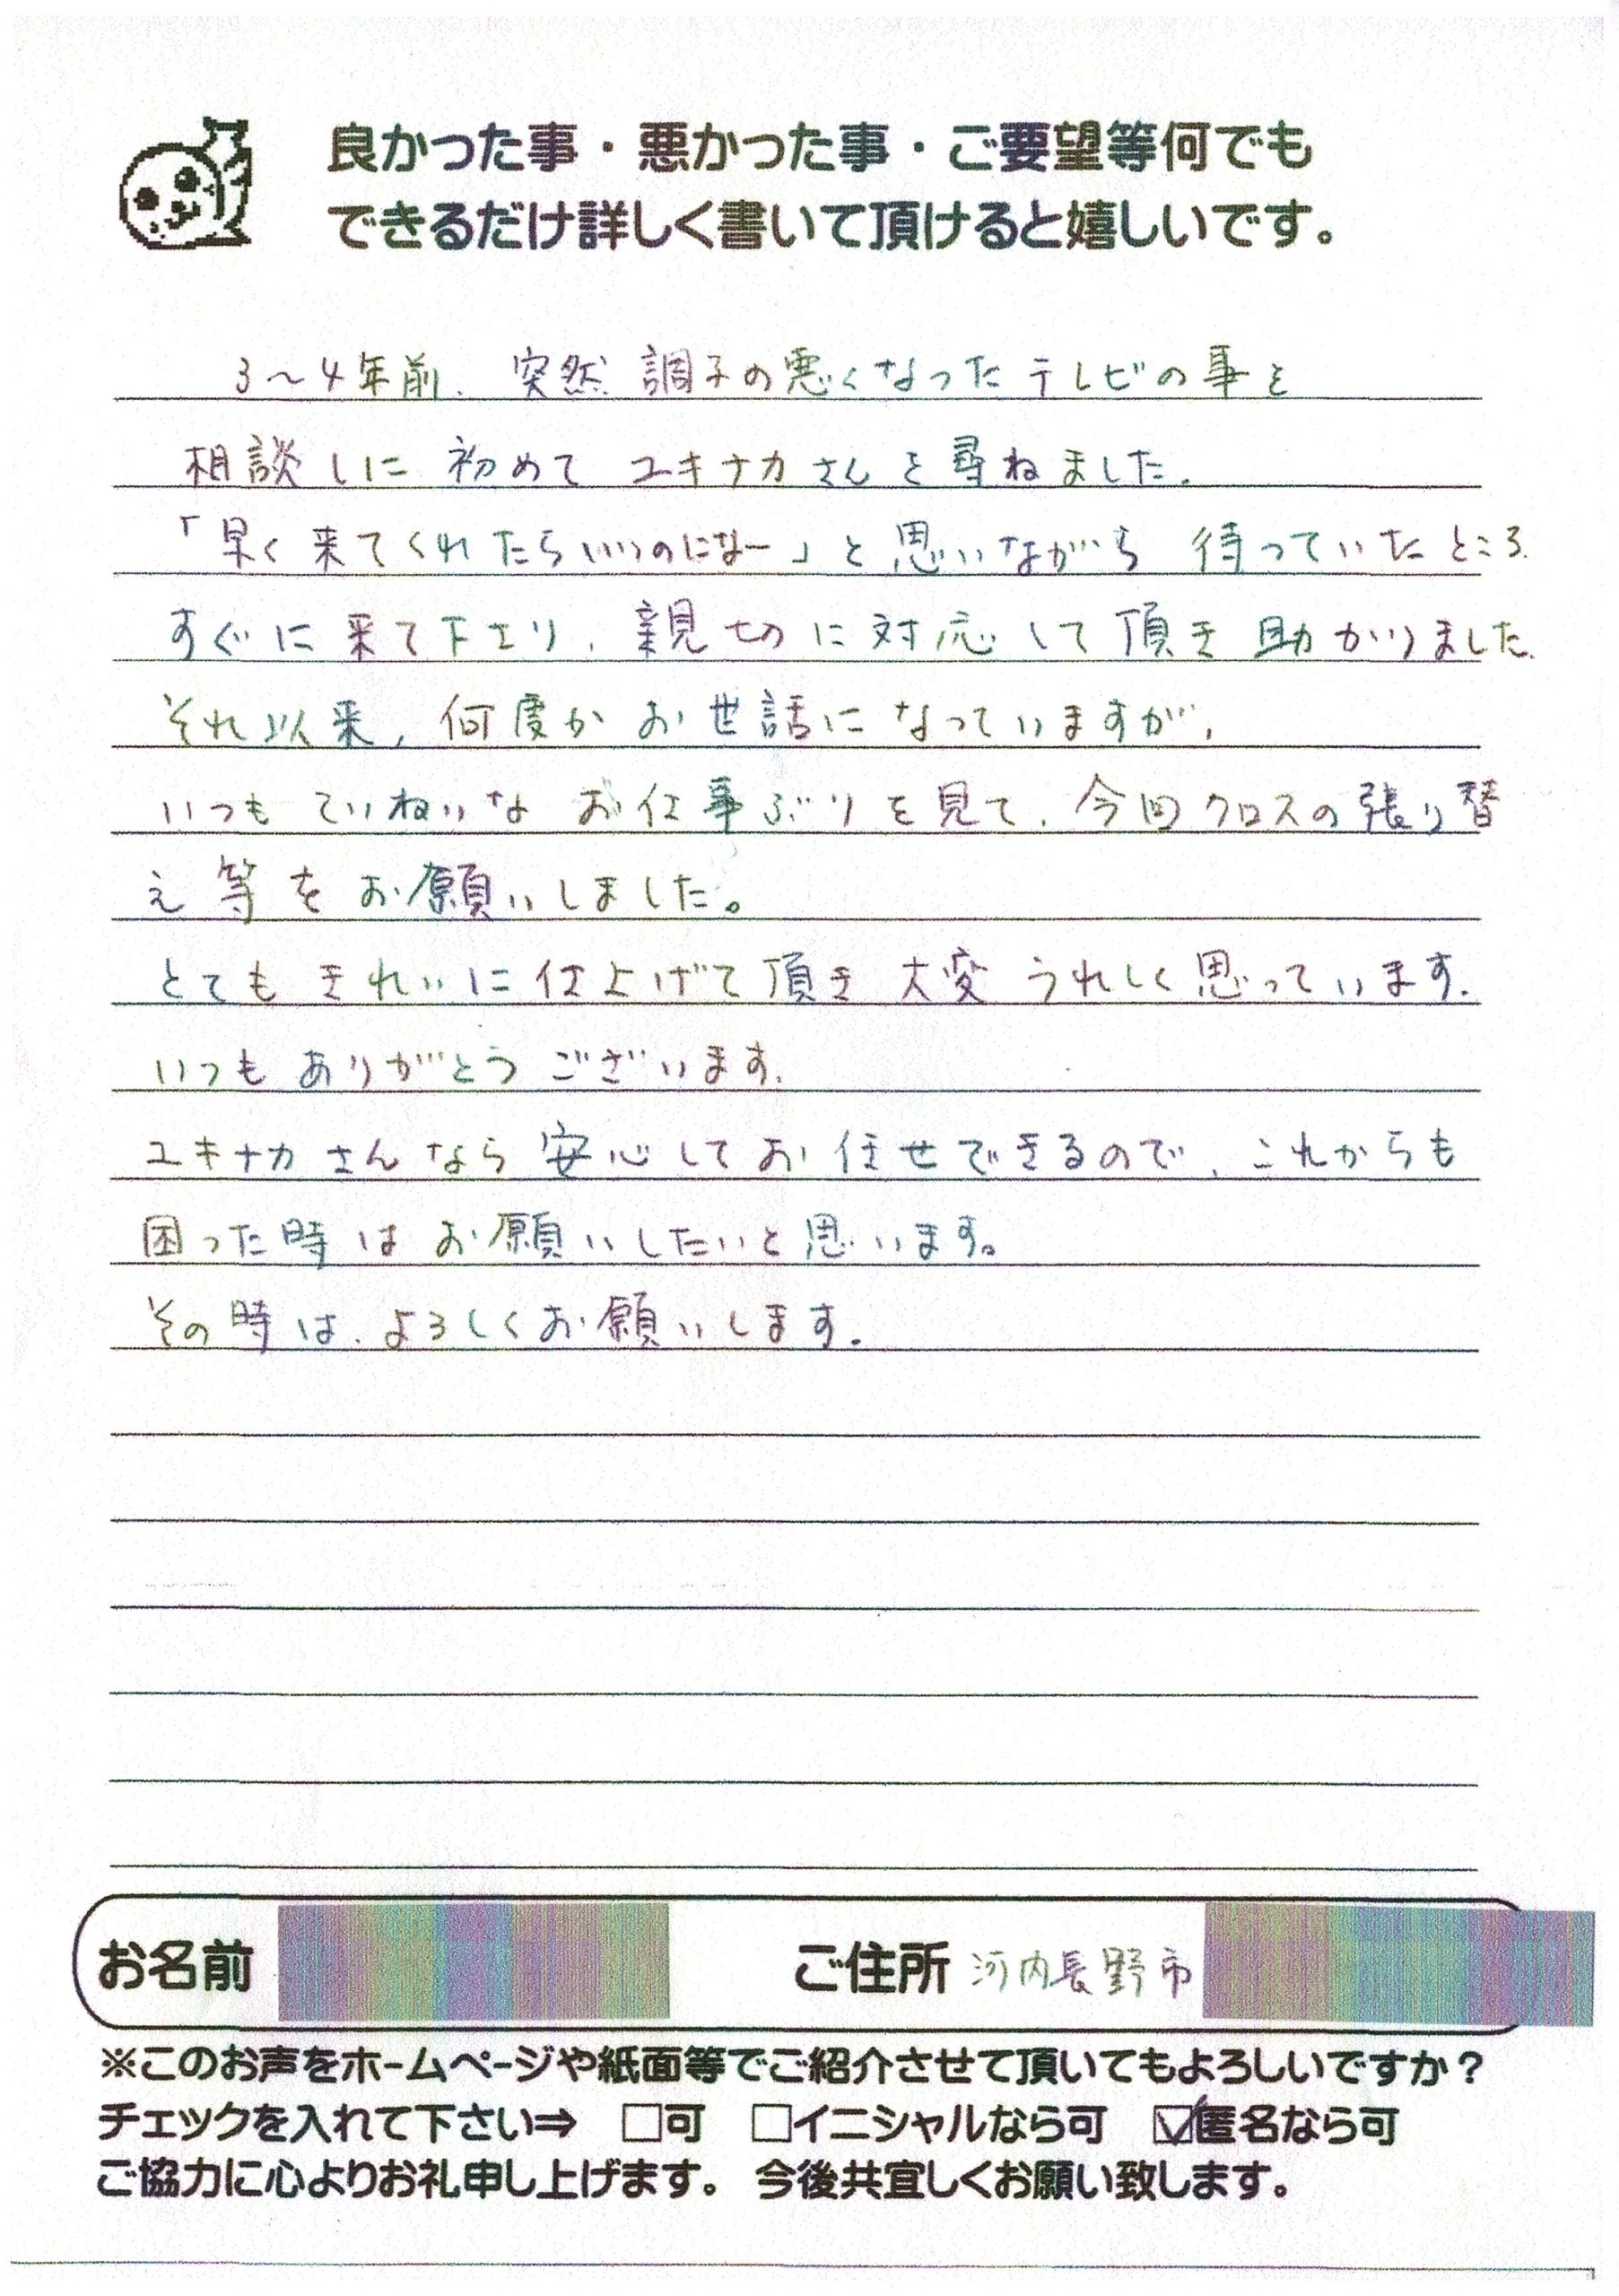 良かった事・悪かった事・ご要望等何でも
できるだけ詳しく書いて頂けると嬉しいです。
3～4年前、突然調子の悪くなったテレビの事を
相談しに初めてユキナカさんを尋ねました。
「早く来てくれたらいいのになー」と思いながら待っていたところ、
すぐに来て下さり、親切に対応して頂き助かりました。
それ以来、何度かお世話になっていますが、
いつもていねいなお仕事ぶりを見て、今回クロスの張り替
え等をお願いしました。
とてもきれいに仕上げて頂き大変うれしく思っています。
いつもありがとうございます。
ユキナカさんなら安心してお任せできるので、これからも
困った時はお願いしたいと思います。
その時は、よろしくお願いします。
お名前 ご住所 河内長野市
※このお声をホームページや紙面等でご紹介させて頂いてもよろしいですか？
チェックを入れて下さい⇒ □可 □イニシャルなら可 ☑匿名なら可
ご協力に心よりお礼申し上げます。 今後共宜しくお願い致します。